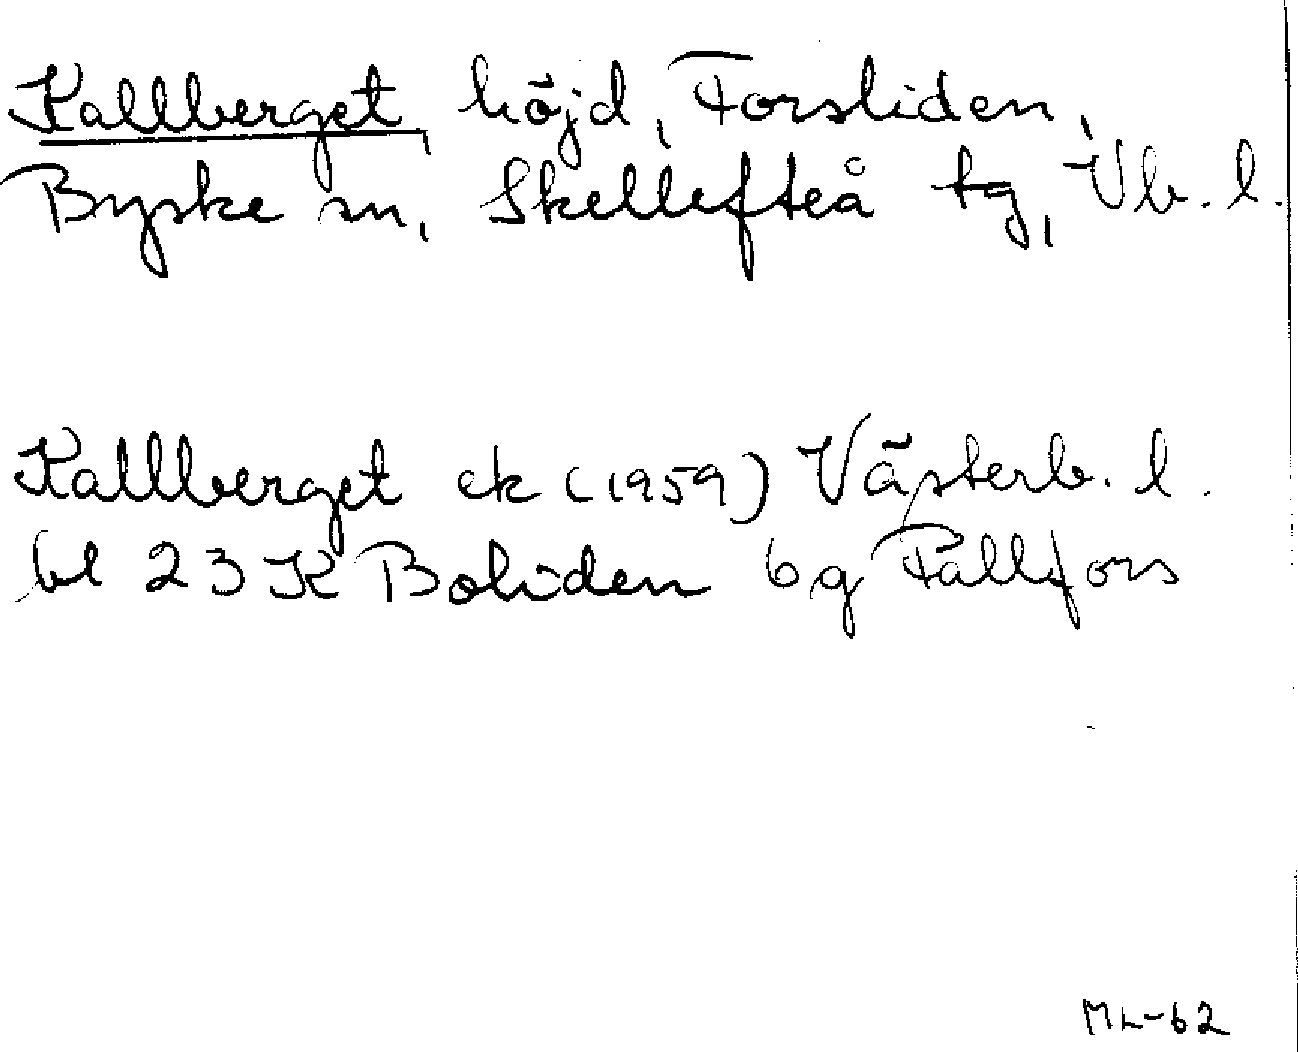 Kallberget, höjd, Forsliden,
Byske sn, Skellefteå tg, Vb. l.
Kallberget ek (1959) Västerb. l.
bl 23 K Boliden 6g Fällfors
ML-62